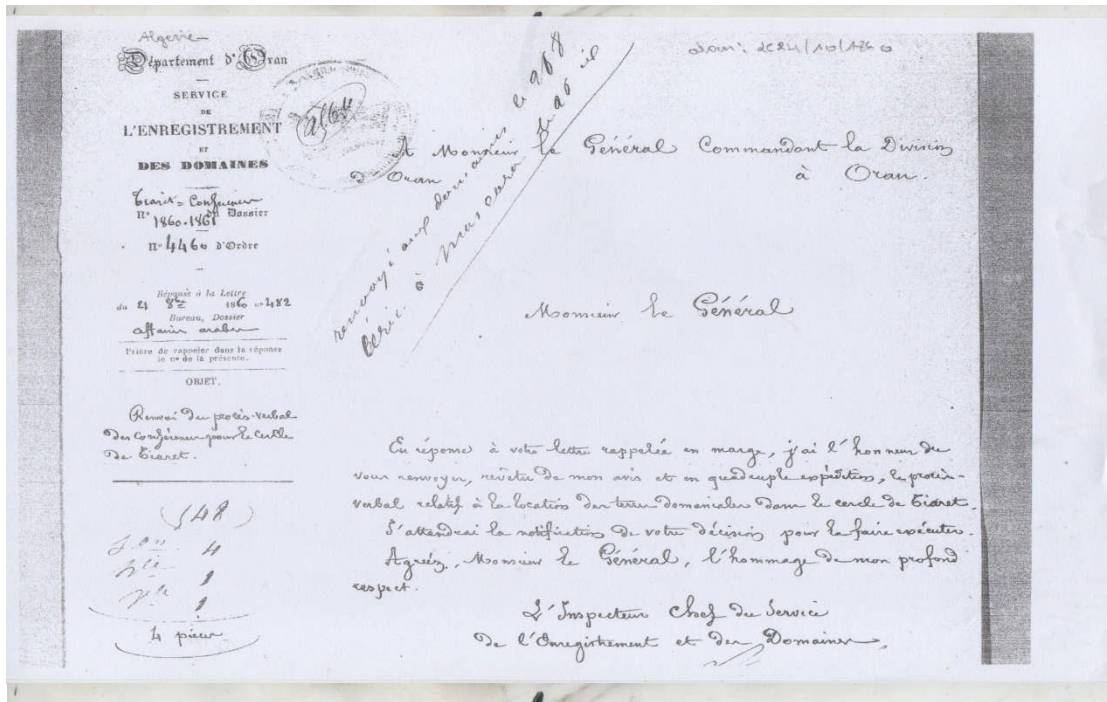 Algérie
Département d'Oran
SERVICE
DE
L'ENREGISTREMENT
ET
DES DOMAINES
Tiaret = Conférences
N° 1860-1861 du Dossier
N° 4460 d'Ordre
Réponse à la Lettre
du 21 8bre 1860 n° 482
Bureau, Dossier
affaires arabes
Prière de rappeler dans la réponse
le n° de la présente.
OBJET.
Renvoi du procès-verbal
des conférences pour le cercle
de Tiaret.
548
4
1
1
4 pièces
renvoyé aux domaines le 968
écrit à Mascara
A Monsieur le Général Commandant la Division
d'Oran à Oran.
Monsieur le Général
En réponse à votre lettre rappelée en marge, j'ai l'honneur de
vous renvoyer, revêtu de mon avis et en quadruple expédition, le procès-
verbal relatif à la location des terres domaniales dans le cercle de Tiaret.
J'attendrai la notification de votre décision pour la faire exécuter.
Agréez, Monsieur le Général, l'hommage de mon profond
respect.
L'Inspecteur Chef du Service
de l'Enregistrement et des Domaines,